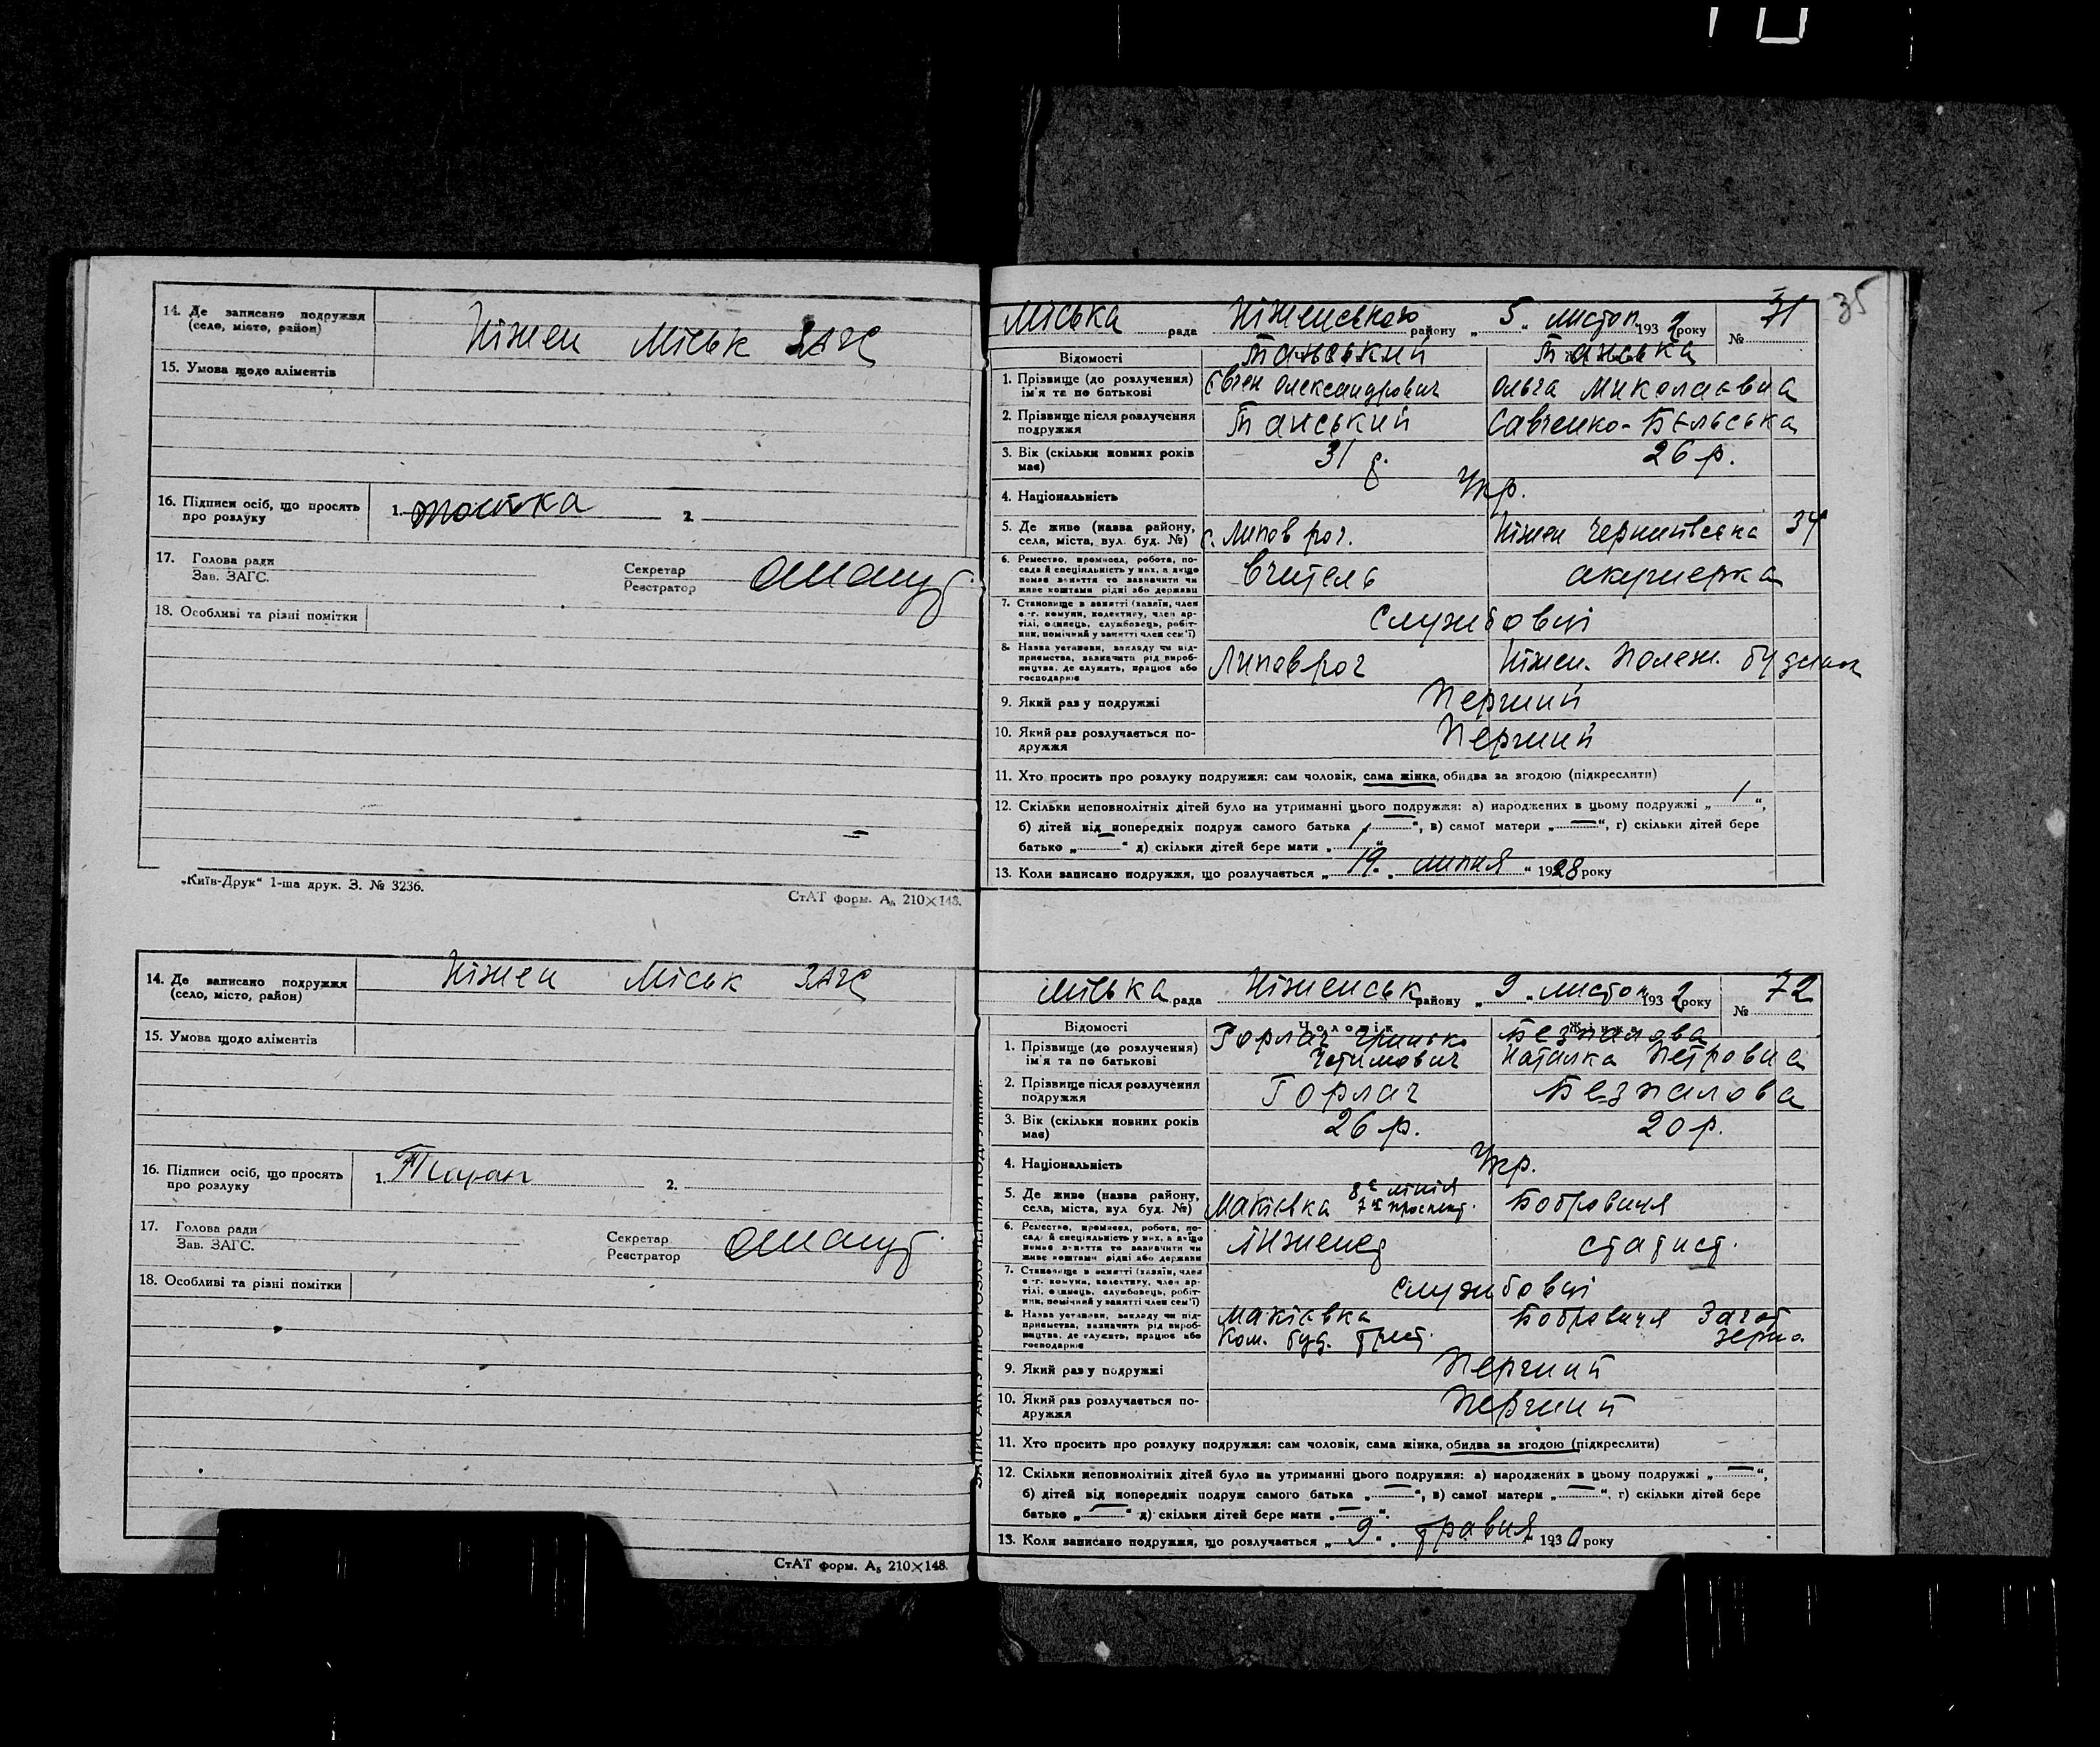 35
14. Де записано подружжя
(село, місто, район)
Ніжен Міськ ЗАГС
15. Умова щодо аліментів
16. Підписи осіб, що просять
про розлуку
1.
2.
17. Голова ради
Зав. ЗАГС.
Секретар
Реєстратор
18. Особливі та різні помітки
„Київ-Друк“ 1-ша друк. З. № 3236.
СтАТ форм. А₅ 210×148.
Міська рада Ніженського району „ 5 „ листоп. 193 2 року № 71
Відомості
Танський Танська
1. Прізвище (до розлучення)
ім'я та по батькові
Євген Олександрович Ольга Миколаєвна
2. Прізвище після розлучення
подружжя
Танський Савченко-Бєльська
3. Вік (скільки повних років
має)
31 р. 26 р.
4. Національність
Укр.
5. Де живе (назва району,
села, міста, вул. буд. №)
с. Липов рог. Ніжен Чернигівська 34
6. Ремество, промисел, робота, по-
сада й спеціяльність у них, а якщо
немає заняття то зазначити чи
живе коштами рідні або держави
вчитель акушерка
7. Становище в занятті (хазяїн, член
с.-г. комуни, колективу, член ар-
тілі, одинець, службовець, робіт-
ник, помічний у занятті член сем'ї)
службовці
8. Назва установи, закладу чи під-
приємства, зазначити рід вироб-
ництва, де служить, працює або
господарює
Липов рог Ніжен. Полож. будинок
9. Який раз у подружжі
Перший
10. Який раз розлучається по-
дружжя
Перший
11. Хто просить про розлуку подружжя: сам чоловік, сама жінка, обидва за згодою (підкреслити)
12. Скільки неповнолітніх дітей було на утриманні цього подружжя: а) народжених в цьому подружжі „ 1 “,
б) дітей від попередніх подруж самого батька „ — “, в) самої матери „ — “, г) скільки дітей бере
батько „ — “ д) скільки дітей бере мати „ 1 “
13. Коли записано подружжя, що розлучається „ 19 „ липня “ 1928 року
14. Де записано подружжя
(село, місто, район)
Ніжен Міськ ЗАГС
15. Умова щодо аліментів
16. Підписи осіб, що просять
про розлуку
1.
2.
17. Голова ради
Зав. ЗАГС.
Секретар
Реєстратор
18. Особливі та різні помітки
СтАТ форм. А₅ 210×148.
Міська рада Ніженськ району „ 9 „ листоп 193 2 року № 72
Відомості Чоловік Жінка
Горлач Гринько Безпалова
1. Прізвище (до розлучення)
ім'я та по батькові
Наталка Петровна
2. Прізвище після розлучення
подружжя
Горлач Безпалова
3. Вік (скільки повних років
має)
26 р. 20 р.
4. Національність
Укр.
5. Де живе (назва району,
села, міста, вул. буд. №)
Макіївка 8а лінія 7й проспект. Бобровиця
6. Ремество, промисел, робота, по-
сада й спеціяльність у них, а якщо
немає заняття то зазначити чи
живе коштами рідні або держави
Інженер статист.
7. Становище в занятті (хазяїн, член
с.-г. комуни, колективу, член ар-
тілі, одинець, службовець, робіт-
ник, помічний у занятті член сем'ї)
службовці
8. Назва установи, закладу чи під-
приємства, зазначити рід вироб-
ництва, де служить, працює або
господарює
Макіївка Бобровиця Загот
Ком. буд. трест. зерно
9. Який раз у подружжі
Перший
10. Який раз розлучається по-
дружжя
Перший
11. Хто просить про розлуку подружжя: сам чоловік, сама жінка, обидва за згодою (підкреслити)
12. Скільки неповнолітніх дітей було на утриманні цього подружжя: а) народжених в цьому подружжі „ — “,
б) дітей від попередніх подруж самого батька „ — “, в) самої матери „ — “, г) скільки дітей бере
батько „ — “ д) скільки дітей бере мати „ — “.
13. Коли записано подружжя, що розлучається „ 9 „ травня “ 1930 року